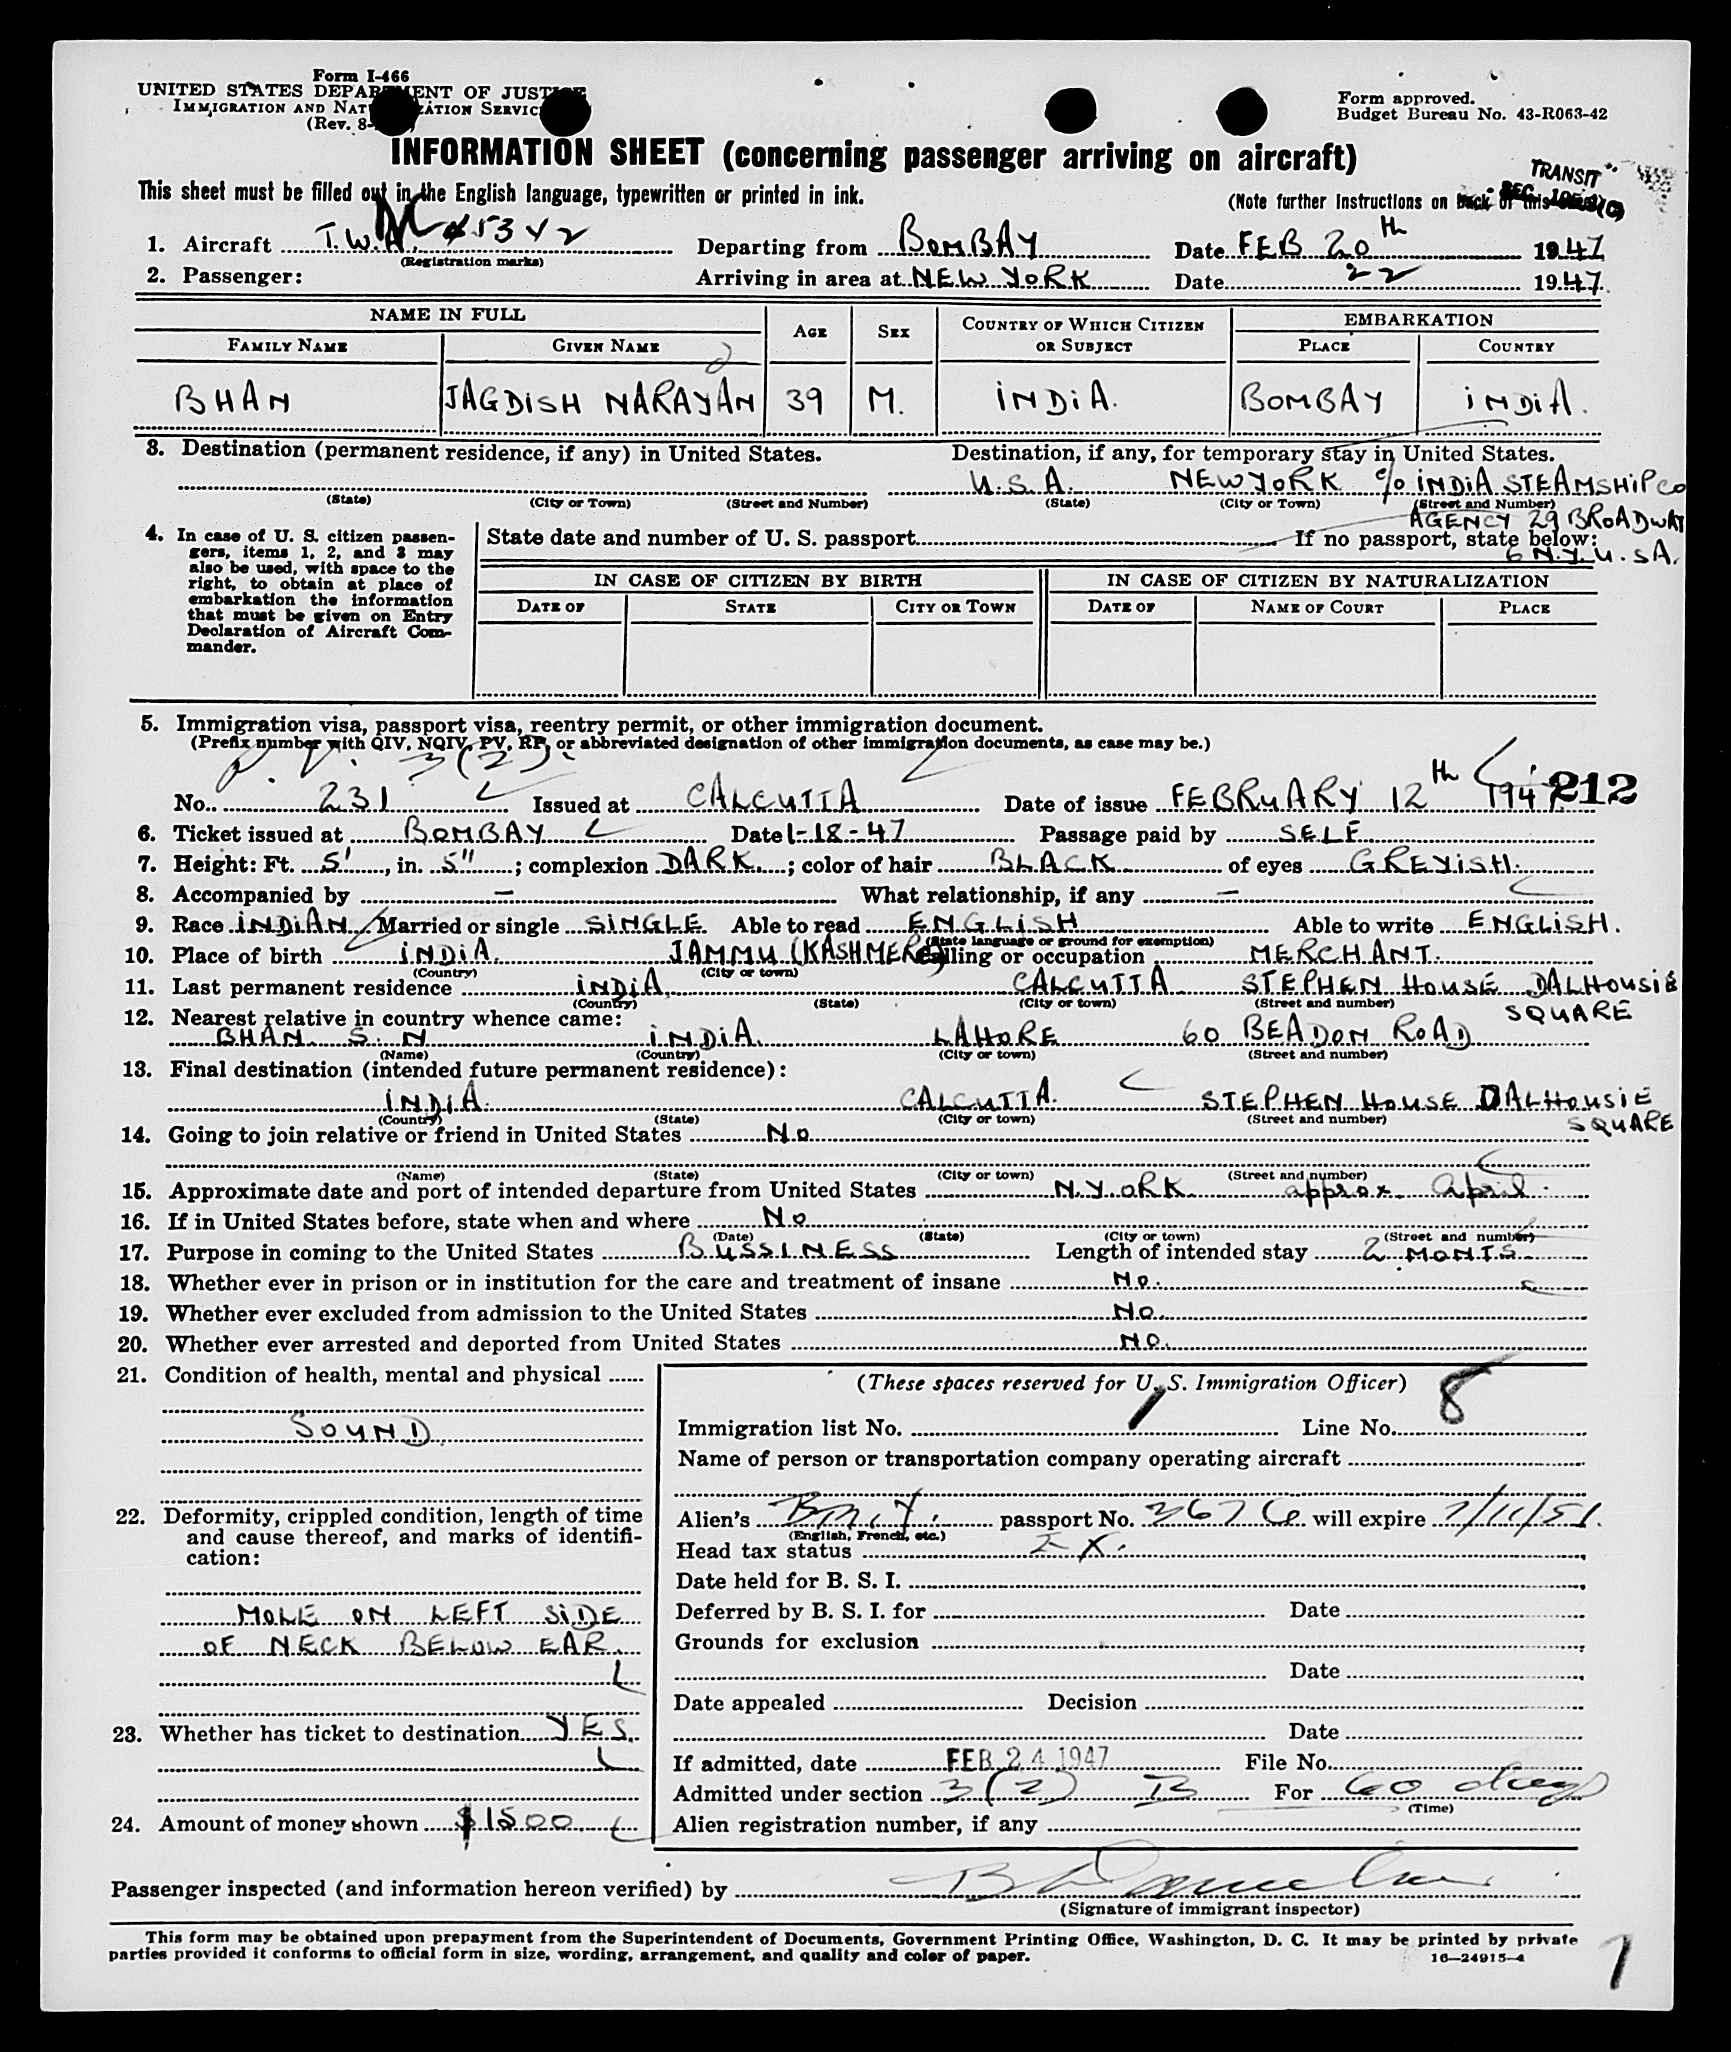 Form I-466
UNITED STATES DEPARTMENT OF JUSTICE
IMMIGRATION AND NATURALIZATION SERVICE
(Rev. 8-
Form approved.
Budget Bureau No. 43-R063-42
INFORMATION SHEET (concerning passenger arriving on aircraft)
TRANSIT
This sheet must be filled out in the English language, typewritten or printed in ink.
(Note further instructions on back of this
1. Aircraft T.W.A. 45342 Departing from BOMBAY Date FEB 20th 1947
(Registration marks)
2. Passenger: Arriving in area at NEW YORK Date 22 1947
NAME IN FULL AGE SEX COUNTRY OF WHICH CITIZEN OR SUBJECT EMBARKATION
FAMILY NAME GIVEN NAME PLACE COUNTRY
BHAN JAGDISH NARAYAN 39 M. INDIA. BOMBAY INDIA.
3. Destination (permanent residence, if any) in United States. Destination, if any, for temporary stay in United States.
U.S.A. NEW YORK c/o INDIA STEAMSHIP CO
(State) (City or Town) (Street and Number) (State) (City or Town) (Street and Number)
AGENCY 29 BROADWAY
6 N.Y. U.S.A.
4. In case of U. S. citizen passengers, items 1, 2, and 3 may also be used, with space to the right, to obtain at place of embarkation the information that must be given on Entry Declaration of Aircraft Commander.
State date and number of U. S. passport If no passport, state below:
IN CASE OF CITIZEN BY BIRTH IN CASE OF CITIZEN BY NATURALIZATION
DATE OF STATE CITY OR TOWN DATE OF NAME OF COURT PLACE
5. Immigration visa, passport visa, reentry permit, or other immigration document.
(Prefix number with QIV, NQIV, PV, RP, or abbreviated designation of other immigration documents, as case may be.)
P.V. 3(2).
No. 231 Issued at CALCUTTA Date of issue FEBRUARY 12th 1947
212
6. Ticket issued at BOMBAY Date 1-18-47 Passage paid by SELF
7. Height: Ft. 5', in. 5"; complexion DARK; color of hair BLACK of eyes GREYISH.
8. Accompanied by — What relationship, if any —
9. Race INDIAN Married or single SINGLE Able to read ENGLISH Able to write ENGLISH.
(State language or ground for exemption)
10. Place of birth INDIA. JAMMU (KASHMERE) Calling or occupation MERCHANT.
(Country) (City or town)
11. Last permanent residence INDIA CALCUTTA STEPHEN HOUSE DALHOUSIE
(Country) (State) (City or town) (Street and number)
SQUARE
12. Nearest relative in country whence came:
BHAN. S. N INDIA. LAHORE 60 BEADON ROAD
(Name) (Country) (City or town) (Street and number)
13. Final destination (intended future permanent residence):
INDIA. CALCUTTA. STEPHEN HOUSE DALHOUSIE
(Country) (State) (City or town) (Street and number)
SQUARE
14. Going to join relative or friend in United States No
(Name) (State) (City or town) (Street and number)
15. Approximate date and port of intended departure from United States N.YORK approx April
16. If in United States before, state when and where No
(Date) (State) (City or town) (Street and number)
17. Purpose in coming to the United States BUSSINESS Length of intended stay 2 MONTS
18. Whether ever in prison or in institution for the care and treatment of insane No.
19. Whether ever excluded from admission to the United States NO.
20. Whether ever arrested and deported from United States NO.
21. Condition of health, mental and physical
SOUND.
22. Deformity, crippled condition, length of time and cause thereof, and marks of identification:
MOLE ON LEFT SIDE
OF NECK BELOW EAR.
23. Whether has ticket to destination YES.
24. Amount of money shown $1500
(These spaces reserved for U. S. Immigration Officer)
Immigration list No. 1 Line No. 8
Name of person or transportation company operating aircraft
Alien's Brit. passport No. 3676 will expire 2/11/51.
(English, French, etc.)
Head tax status EX.
Date held for B. S. I.
Deferred by B. S. I. for Date
Grounds for exclusion
Date
Date appealed Decision
Date
If admitted, date FEB 24 1947 File No.
Admitted under section 3(2) B For 60 days
(Time)
Alien registration number, if any
Passenger inspected (and information hereon verified) by
(Signature of immigrant inspector)
This form may be obtained upon prepayment from the Superintendent of Documents, Government Printing Office, Washington, D. C. It may be printed by private
parties provided it conforms to official form in size, wording, arrangement, and quality and color of paper.
16—24915-4
1